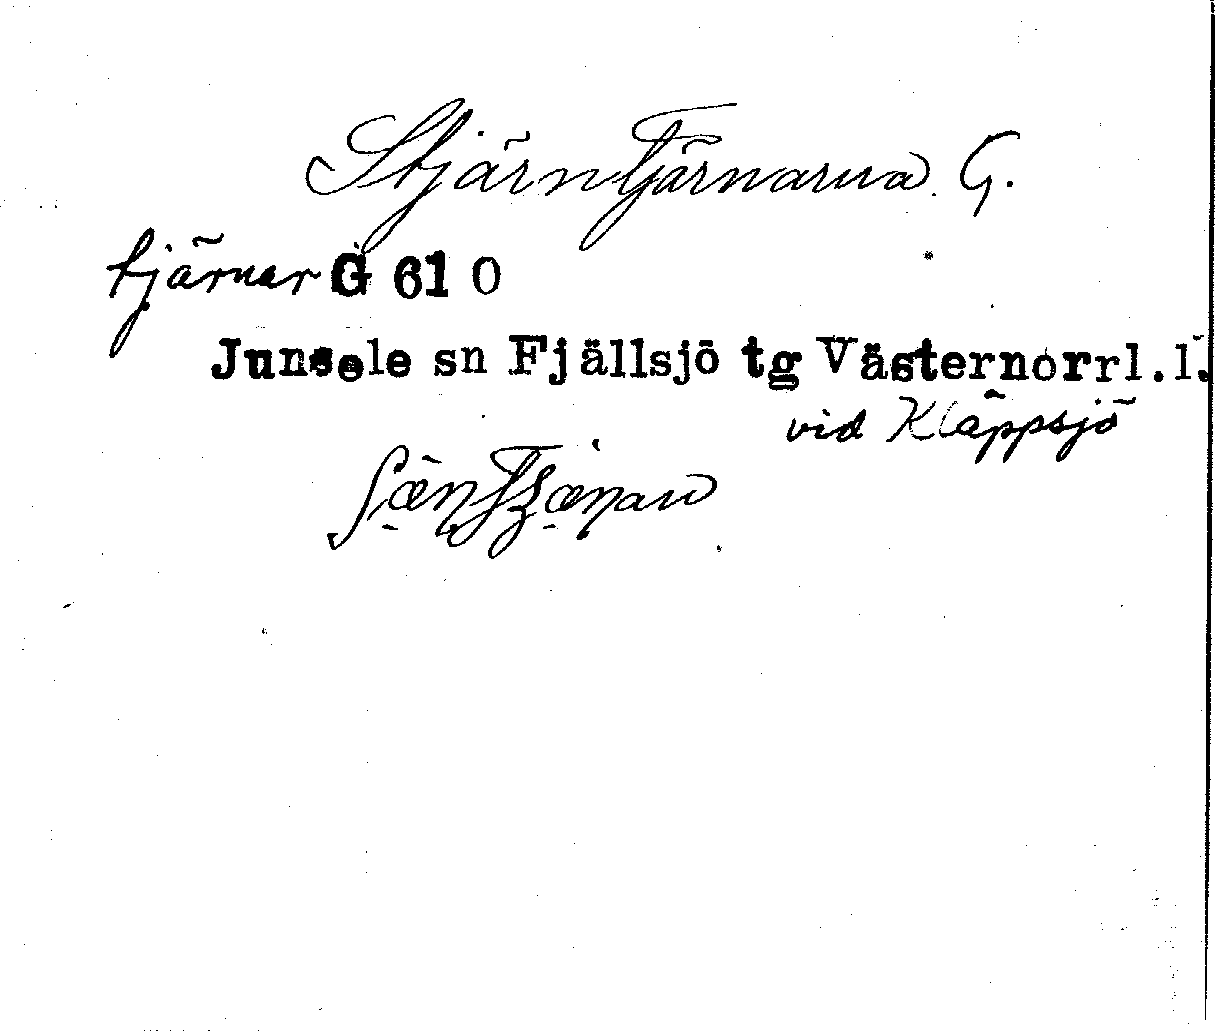 Stjärntjärnarna. G.
tjärnar G 61 O
Junsele sn Fjällsjö tg Västernorrl.l.
vid Kläppsjö